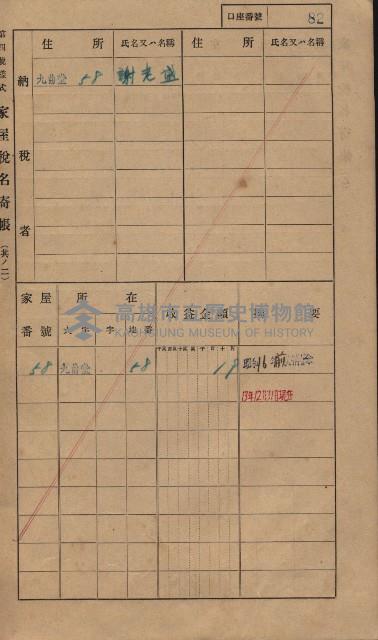 口座番號 82
第四號樣式 家屋稅名寄帳 (其ノ二)
納稅者
住所 氏名又ハ名稱 住所 氏名又ハ名稱
九曲堂 58
家屋番號 所在 收益金額 摘要
大字 字 地番
58 九曲堂 58 18
昭和16年
13年12月31日現在
高雄市立歷史博物館
KAOHSIUNG MUSEUM OF HISTORY